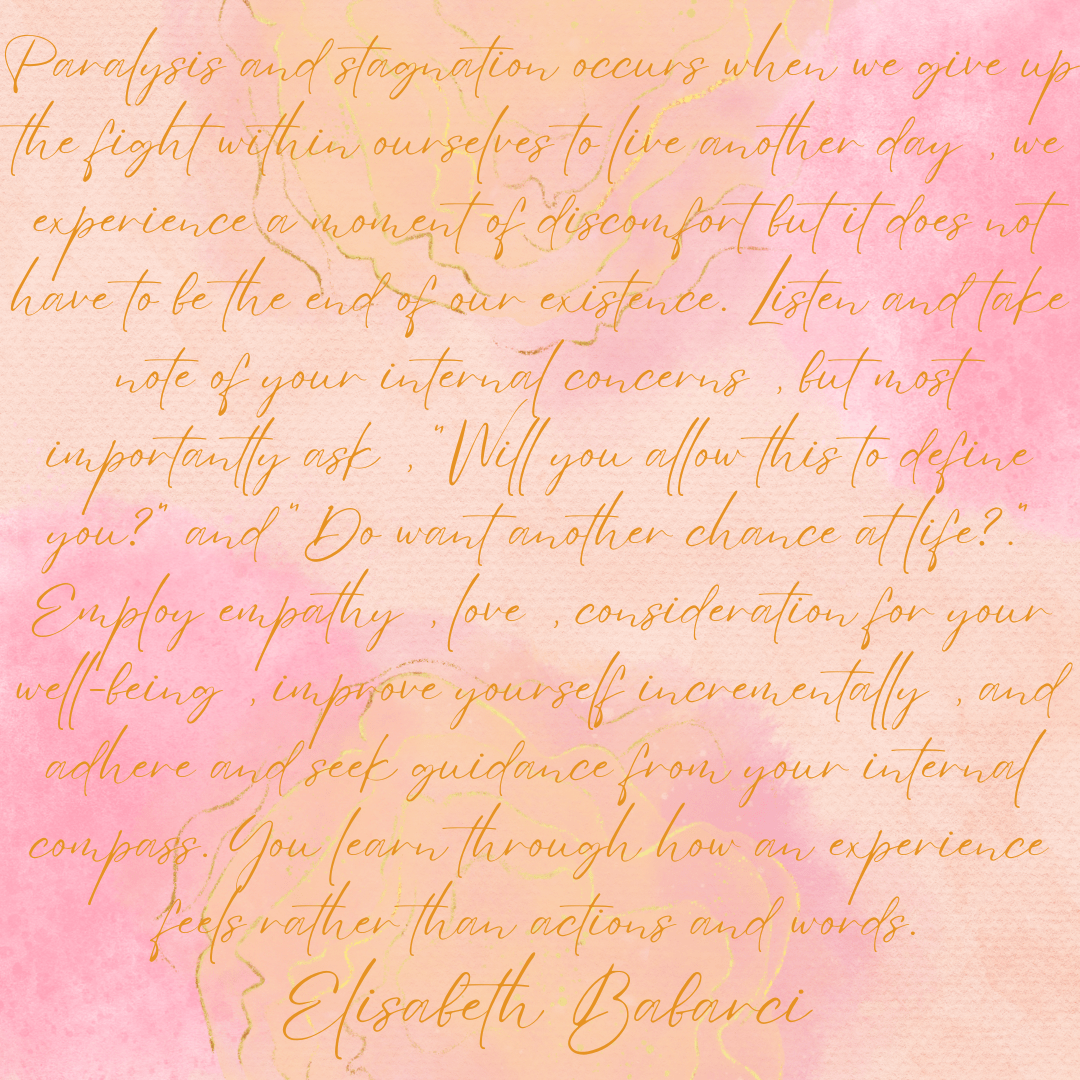 Paralysis and stagnation occurs when we give up
the fight within ourselves to live another day , we
experience a moment of discomfort but it does not
have to be the end of our existence. Listen and take
note of your internal concerns , but most
importantly ask , "Will you allow this to define
you?" and "Do want another chance at life?."
Employ empathy , love , consideration for your
well-being , improve yourself incrementally , and
adhere and seek guidance from your internal
compass. You learn through how an experience
feels rather than actions and words.
Elisabeth Babarci